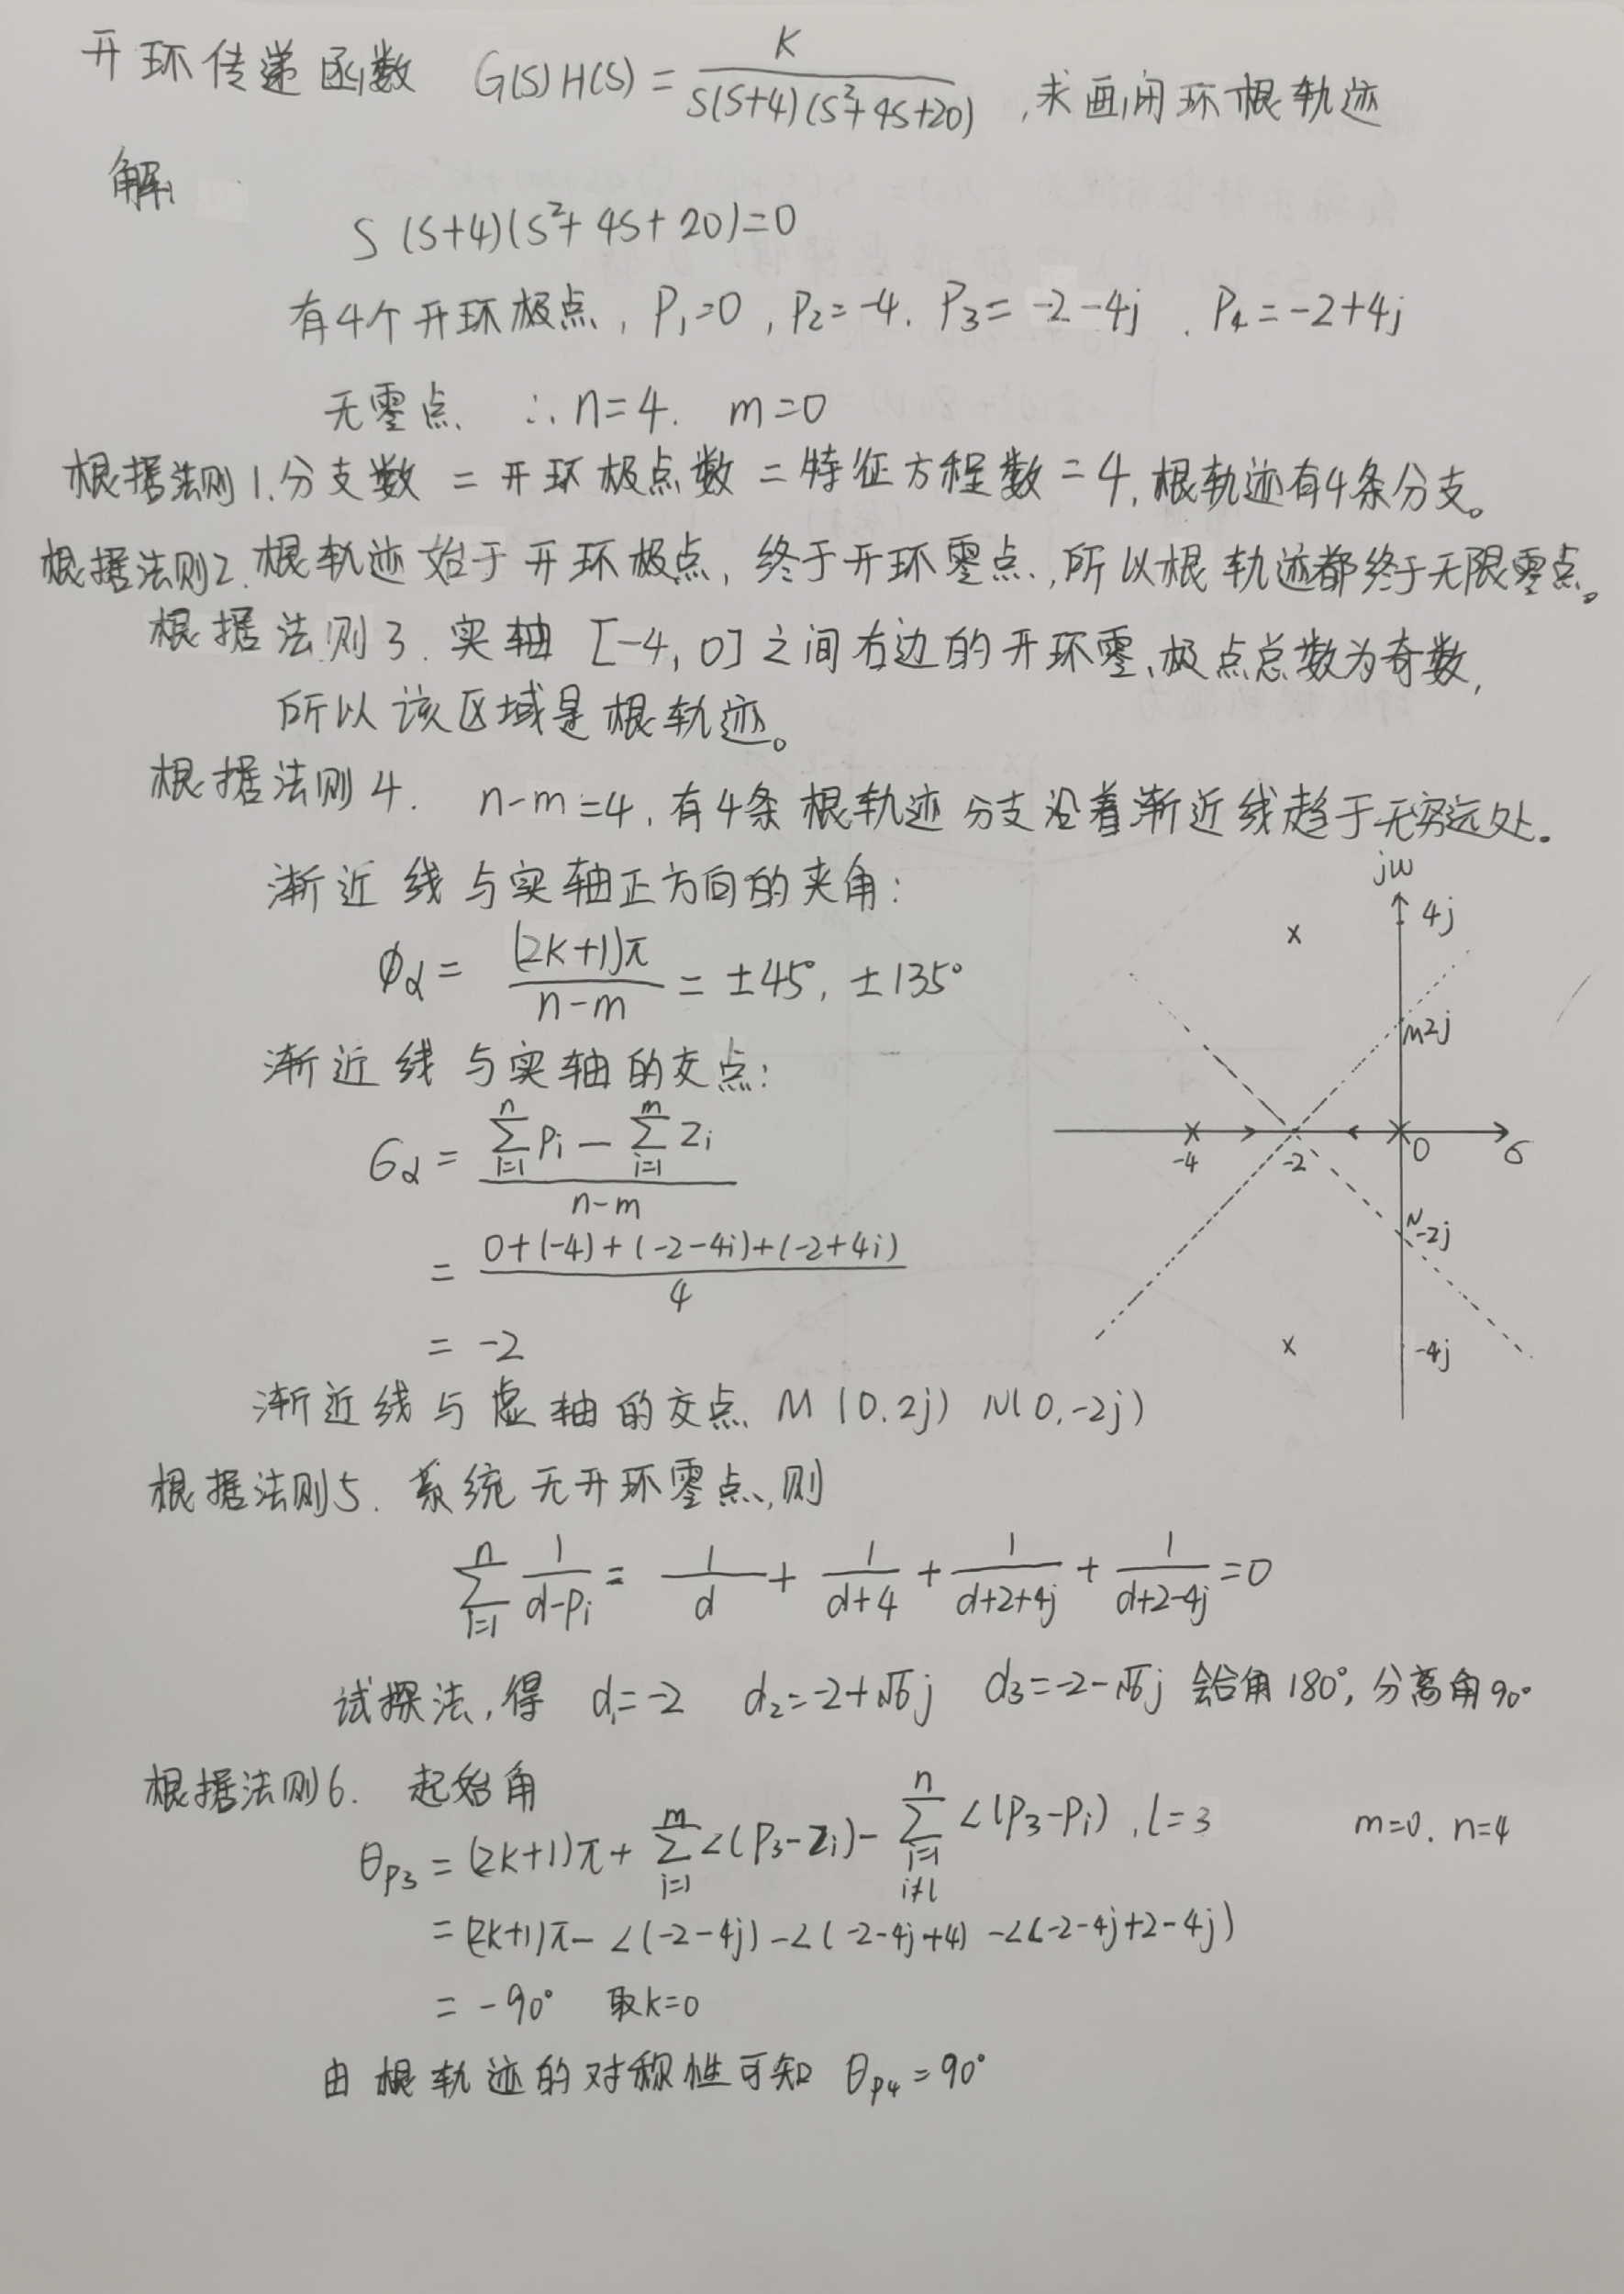 开环传递函数 G(S)H(S) = K / S(S+4)(S²+4S+20) ,求画闭环根轨迹
解:
S(S+4)(S²+4S+20)=0
有4个开环极点, P₁=0, P₂=-4, P₃=-2-4j, P₄=-2+4j
无零点、 ∴ n=4. m=0
根据法则1.分支数 = 开环极点数 = 特征方程数 = 4,根轨迹有4条分支。
根据法则2.根轨迹始于开环极点,终于开环零点,所以根轨迹都终于无限零点。
根据法则3.实轴 [-4,0]之间右边的开环零、极点总数为奇数,
所以该区域是根轨迹。
根据法则4. n-m=4,有4条根轨迹分支沿着渐近线趋于无穷远处。
渐近线与实轴正方向的夹角:
φα = (2K+1)π / n-m = ±45°, ±135°
渐近线与实轴的交点:
σα = ∑ⁿᵢ₌₁ Pi - ∑ᵐᵢ₌₁ Zi / n-m
= 0+(-4)+(-2-4i)+(-2+4i) / 4
= -2
渐近线与虚轴的交点 M(0,2j) N(0,-2j)
jω
4j
M2j
-4
-2
0
σ
N-2j
-4j
根据法则5. 系统无开环零点,则
∑ⁿᵢ₌₁ 1/d-Pi = 1/d + 1/d+4 + 1/d+2+4j + 1/d+2-4j = 0
试探法,得 d₁=-2 d₂=-2+√6j d₃=-2-√6j 会合角180°,分离角90°
根据法则6. 起始角
θp₃ = (2K+1)π + ∑ᵐᵢ₌₁ ∠(P₃-Zi) - ∑ⁿᵢ₌₁ i≠l ∠(P₃-Pi), l=3 m=0. n=4
= (2K+1)π - ∠(-2-4j) - ∠(-2-4j+4) - ∠(-2-4j+2-4j)
= -90° 取K=0
由根轨迹的对称性可知 θp₄=90°